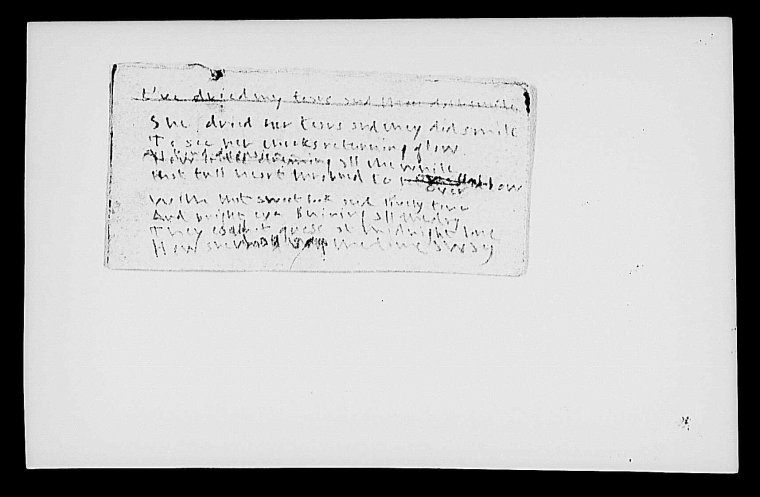 I've dried my tears and then did smile
She dried her tears and they did smile
To see her cheeks returning glow
How little dreaming all the while
That full heart throbbed to overflow
over
With that sweet look and lively tone
And bright eye shining all the day
They could not guess at midnight lone
How she would weep the time away